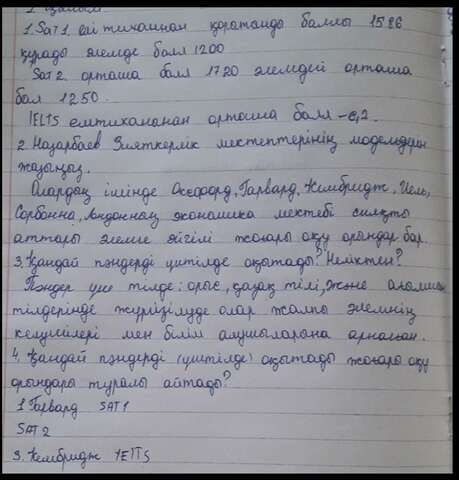 1. Sat 1 емтиханнан қоратанды баллы 1586
құрады әлемде балл 1200
Sat 2 орташа балл 1720 әлемдегі орташа
бал 1250.
IELTS емтиханынан орташа балл - 6,2.
2. Назарбаев Зияткерлік мектептерінің модемдерін
жазыңыз.
Олардың ішінде Оксфорд, Гарвард, Кембридж, Йель,
Сорбонна, Лондонның экономика мектебі сияқты
аттары әлемге әйгілі жоғары оқу орындар бар.
3. Қандай пәндерді үштілде оқытады? Неліктен?
Пәндер үш тілде: орыс, қазақ тілі, және ағылшын
тілдерінде жүргізілуде олар жалпы әлемнің
келушілері мен білім алушыларына арналған.
4. Қандай пәндерді (үштілде) оқытады жоғары оқу
орындары туралы айтады?
1 Гарвард SAT 1
SAT 2
3. Кембридж IELTS